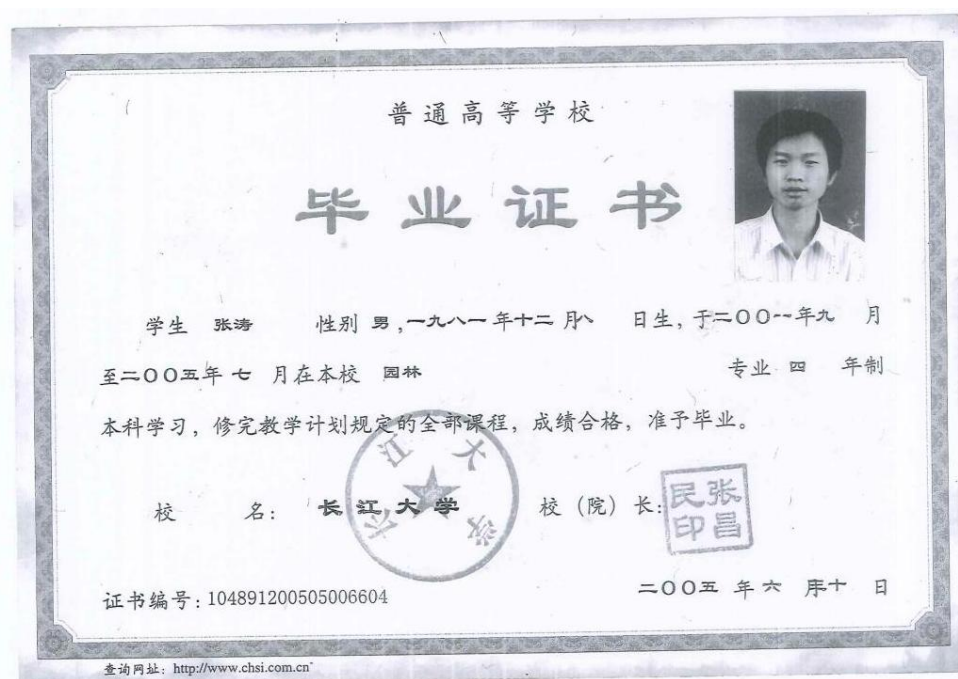 普通高等学校
毕业证书
学生 张涛 性别 男，一九八一年十二月八 日生，于二〇〇一年九 月
至二〇〇五年 七 月在本校 园林 专业 四 年制
本科学习，修完教学计划规定的全部课程，成绩合格，准予毕业。
校 名： 长江大学 校（院）长：
长江大学
张昌民印
证书编号：104891200505006604
二〇〇五 年 六 月十 日
查询网址：http://www.chsi.com.cn